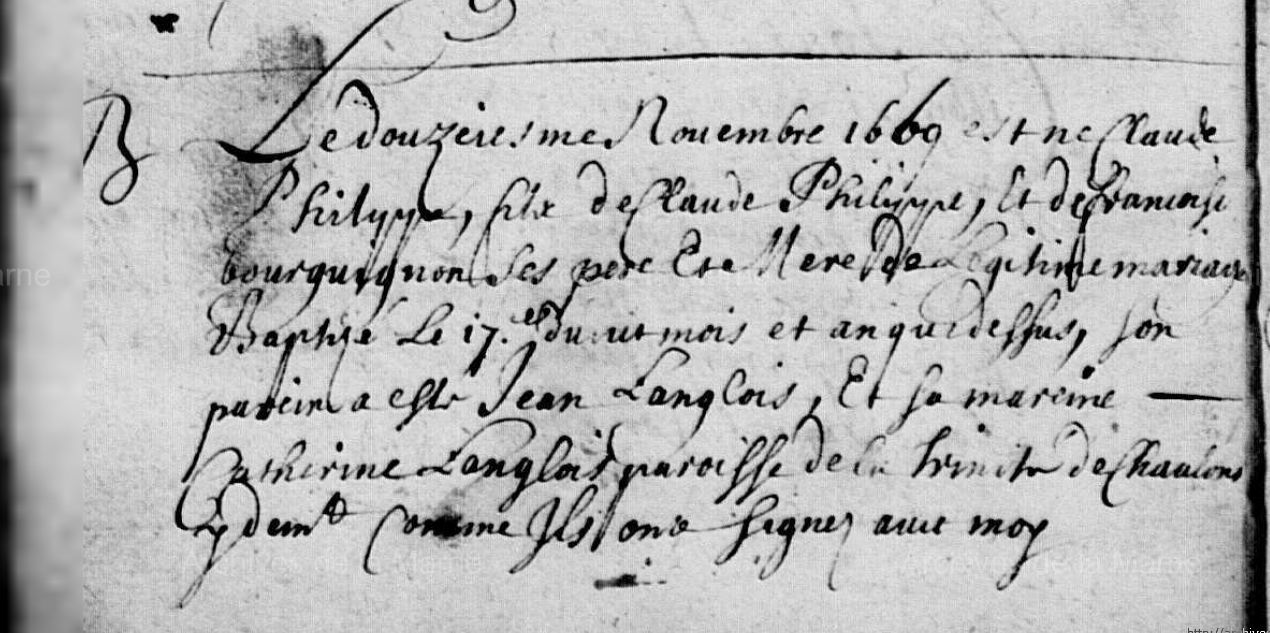 B Le douzeiesme Nouembre 1669 est ne Claude
Philippe, filx de Claude Philippe, Et de francoise
bourguignon ses pere Et Mere De Legitime mariage
Baptizé Le 17.e dudit mois et an que dessus, son
parein a esté Jean Langlois, Et sa mareine —
Catherine Langlois paroisse de la trinité de Chaalons
y demt Comme Ils ont signez auec moy